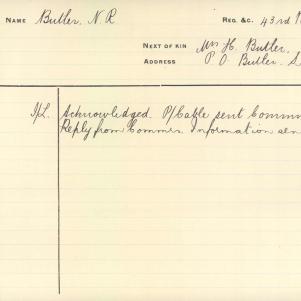 NAME Butler, N R REG. &C. 43rd
NEXT OF KIN Mrs H. Butler,
ADDRESS P O Butler. S
I/L. Acknowledged. P/Cable sent Commn
Reply from Commrs Information sen